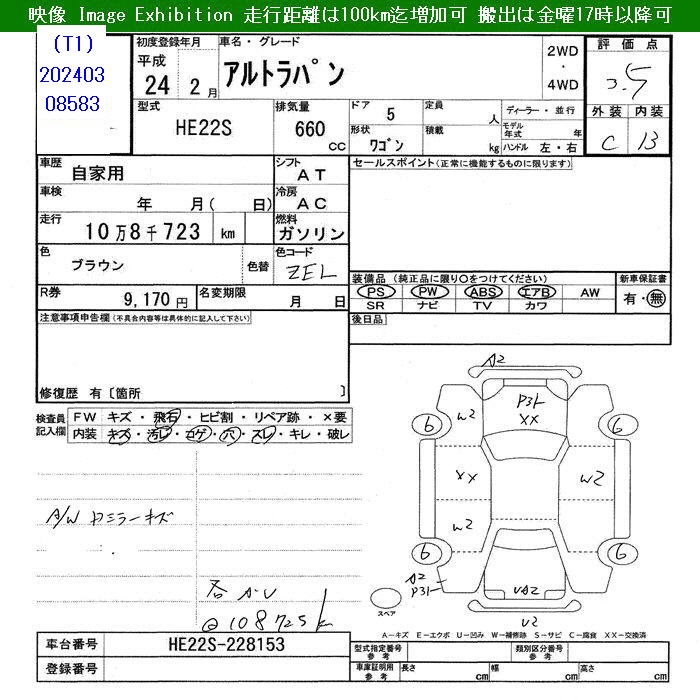 映像 Image Exhibition 走行距離は100km迄増加可 搬出は金曜17時以降可
(T1)
202403
08583
初度登録年月
平成
24 2 月
車名・グレード
アルトラパン
2WD
・
4WD
評価点
3.5
外装 内装
C B
型式
HE22S
排気量
660
cc
ドア 5
形状 ワゴン
定員 人
積載 kg
ディーラー・並行
モデル年式 年
ハンドル 左・右
車歴
自家用
シフト
AT
車検
年 月( 日)
冷房
AC
走行
10万8千723 km
燃料
ガソリン
色
ブラウン
色替
色コード
ZEL
R券
9,170円
名変期限
月 日
セールスポイント(正常に機能するものに限ります)
装備品 (純正品に限り○をつけてください)
PS PW ABS エアB AW
SR ナビ TV カワ
新車保証書
有・無
後日品
注意事項申告欄(不具合内容等は具体的に記入して下さい)
修復歴 有〔箇所 〕
検査員
記入欄
FW キズ・飛石・ヒビ割・リペア跡・×要
内装 キズ・汚レ・コゲ・穴・スレ・キレ・破レ
A/W ドミラーキズ
各A・U
@108725k
A2
W2
P31
XX
6
6
XX
W2
W2
6
6
A2
P31
UA2
U2
スペア
A-キズ E-エクボ U-凹み W-補修跡 S-サビ C-腐食 XX-交換済
車台番号
HE22S-228153
登録番号
型式指定番号
参考
類別区分番号
参考
車庫証明用
参考
長さ cm
幅 cm
高さ cm